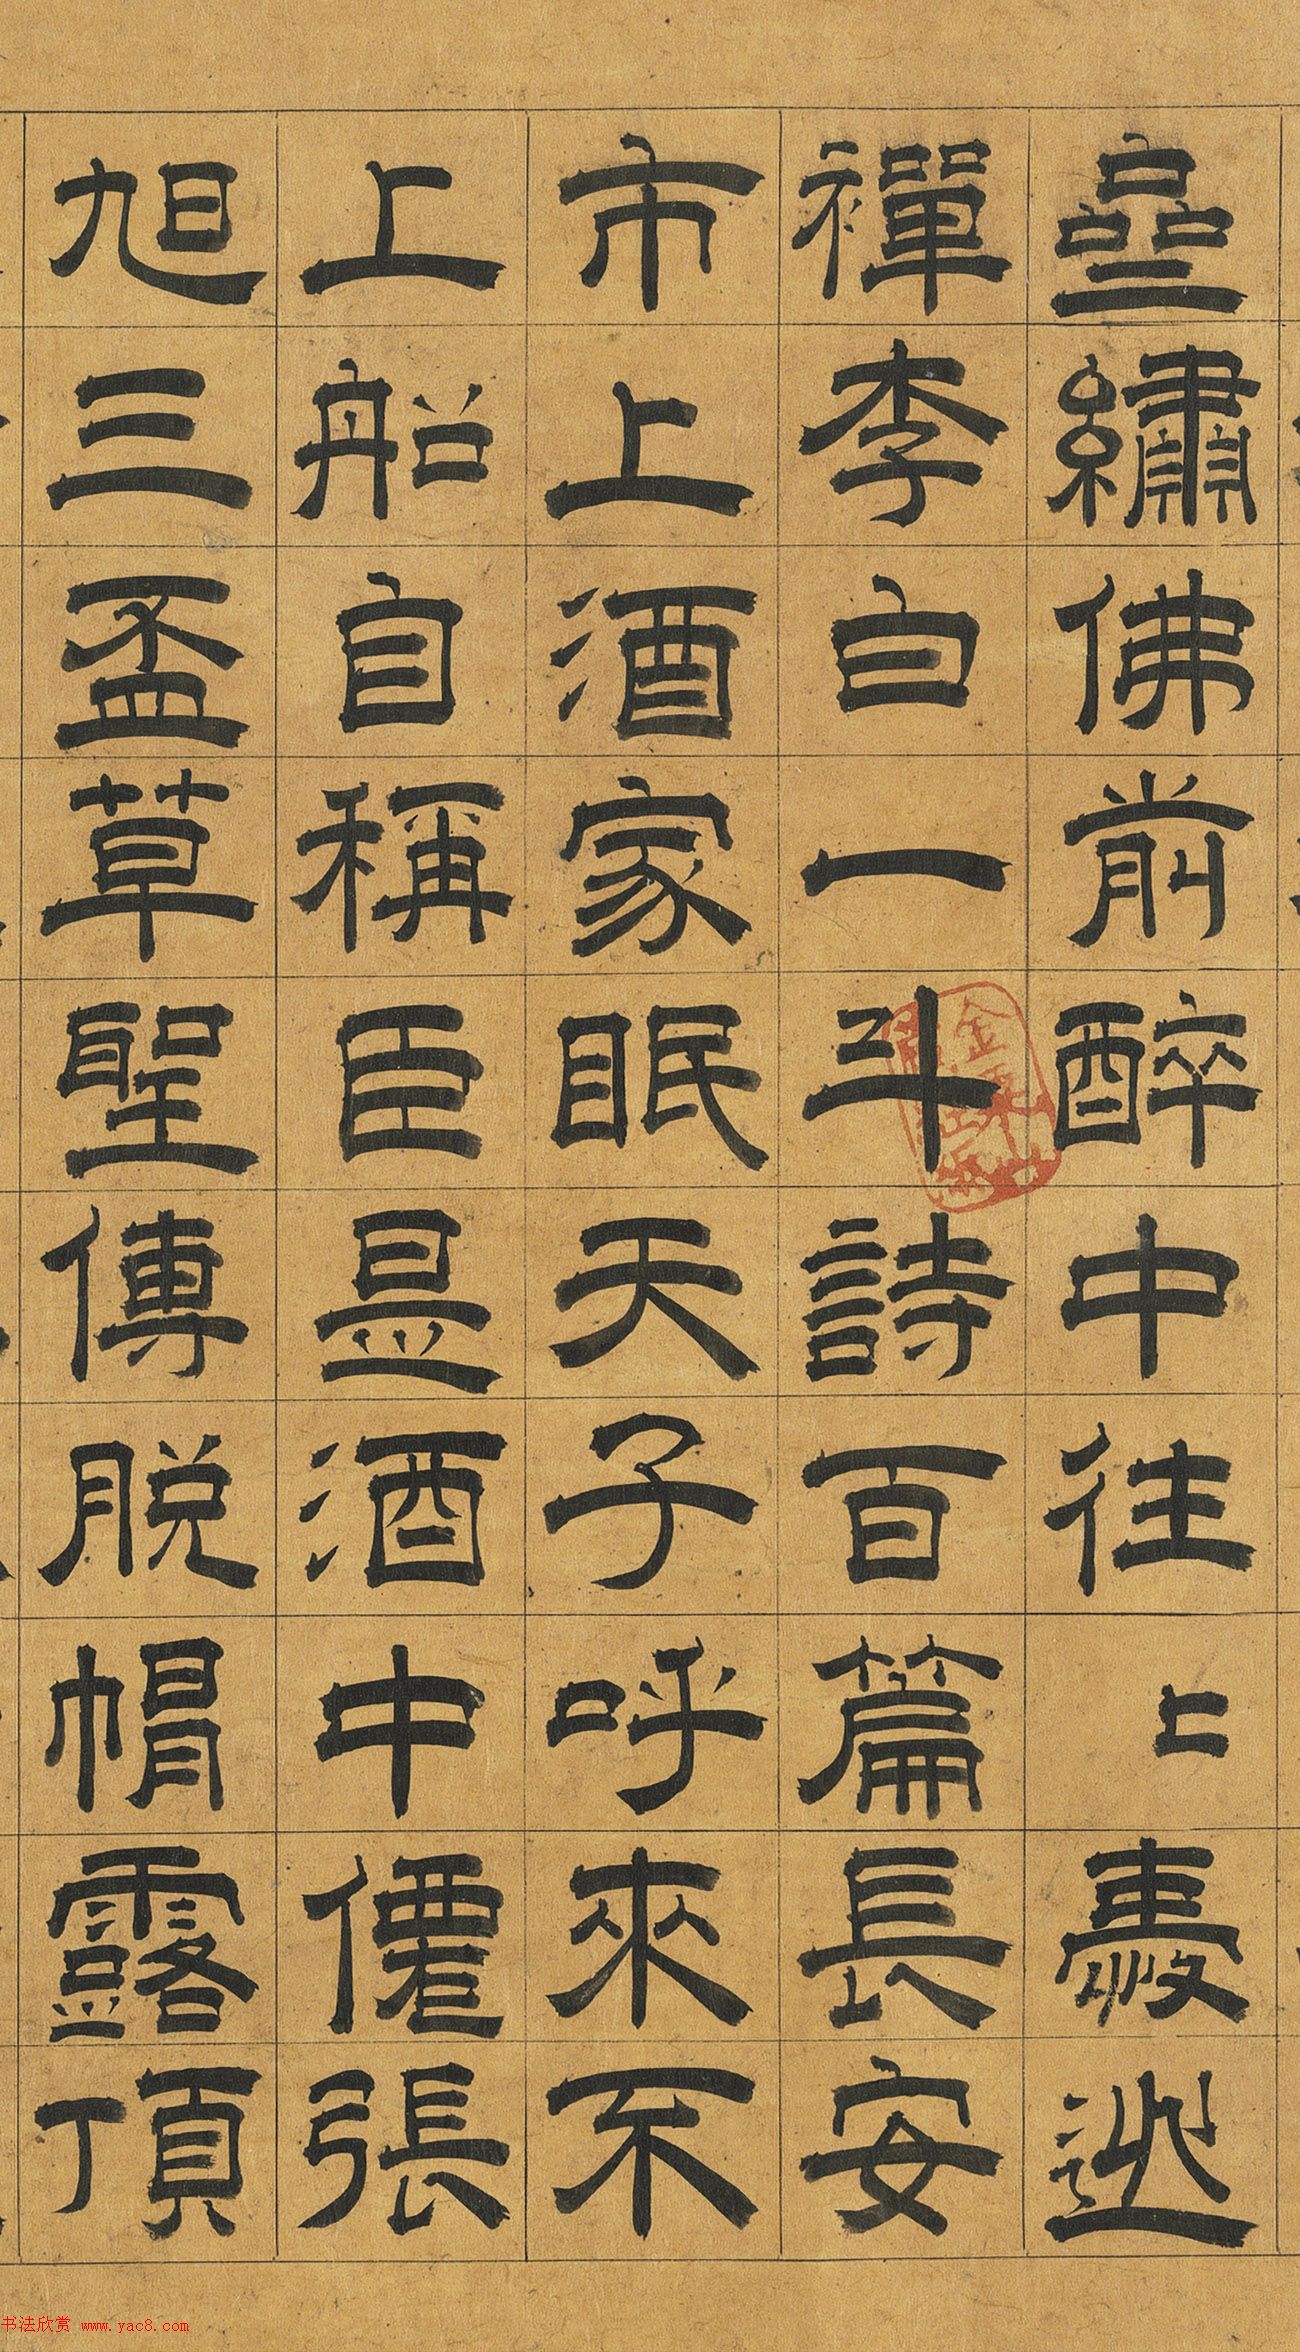 亝繡佛前醉中往〻愛逃
禪李白一斗詩百篇長安
市上酒家眠天子呼來不
上船自稱臣是酒中僊張
旭三盃草聖傳脫帽露頂
金粟山藏經紙
书法欣赏 www.yac8.com